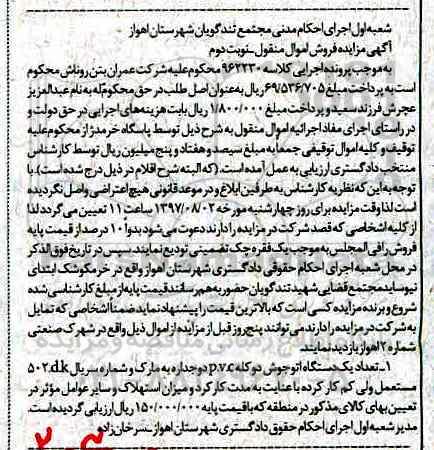 شعبه اول اجرای احکام مدنی مجتمع تندگویان شهرستان اهواز
آگهی مزایده فروش اموال منقول_نوبت دوم
به موجب پرونده اجرایی کلاسه ۹۶۲۲۳۰ محکوم علیه شرکت عمران بتن روناش محکوم
است به پرداخت مبلغ ۶۹/۵۳۶/۷۰۵ ریال به عنوان اصل طلب در حق محکوم‌له به نام عبدالمزیز
عچرش فرزند سید و پرداخت مبلغ ۱/۸۰۰/۰۰۰ ریال بابت هزینه‌های اجرایی در حق دولت و
در راستای اجرای مفاد اجرائیه اموال منقول به شرح ذیل توسط پاسگاه خرمدژ از محکوم علیه
توقیف و کلیه اموال توقیفی جمعا به مبلغ سیصد و هفتاد و پنج میلیون ریال توسط کارشناس
منتخب دادگستری ارزیابی به عمل آمده است. (که البته شرح اقلام در ذیل درج شده است). با
توجه به این که نظریه کارشناس به طرفین ابلاغ و در موعد قانونی هیچ اعتراضی واصل نگردیده
است لذا وقت مزایده برای روز چهارشنبه مورخه ۱۳۹۷/۰۸/۰۲ ساعت ۱۱ تعیین می‌گردد لذا
از کلیه اشخاصی که قصد شرکت در مزایده را دارند دعوت می‌شود بدوا ۱۰ درصد از قیمت پایه
فروش را فی المجلس به موجب یک فقره چک تضمینی تودیع نمایند. سپس در تاریخ فوق الذکر
در محل شعبه اجرای احکام حقوقی دادگستری شهرستان اهواز واقع در خرمکوشک ابتدای
نیوساید مجتمع قضایی شهید تندگویان حضور به هم رسانند قیمت پایه از مبلغ کارشناسی شده
شروع و برنده مزایده کسی است که بالاترین قیمت را پیشنهاد نماید ضمنا اشخاصی که تمایل
به شرکت در مزایده را دارند می‌توانند پنج روز قبل از مزایده از اموال ذیل واقع در شهرک صنعتی
شماره ۲ اهواز بازدید نمایند.
۱_تعداد یک دستگاه اتو جوش دو کله p.v.c دو جداره به مارک و شماره سریال ۵۰۲.d.k
مستعمل ولی کم کار کرده با عنایت به مدت کارکرد و میزان استهلاک و سایر عوامل مؤثر در
تعیین بهای کالای مذکور در منطقه که با قیمت پایه ۱۵۰/۰۰۰/۰۰۰ ریال ارزیابی گردیده است.
مدیر شعبه اول اجرای احکام حقوق دادگستری شهرستان اهواز _سرخان زاده